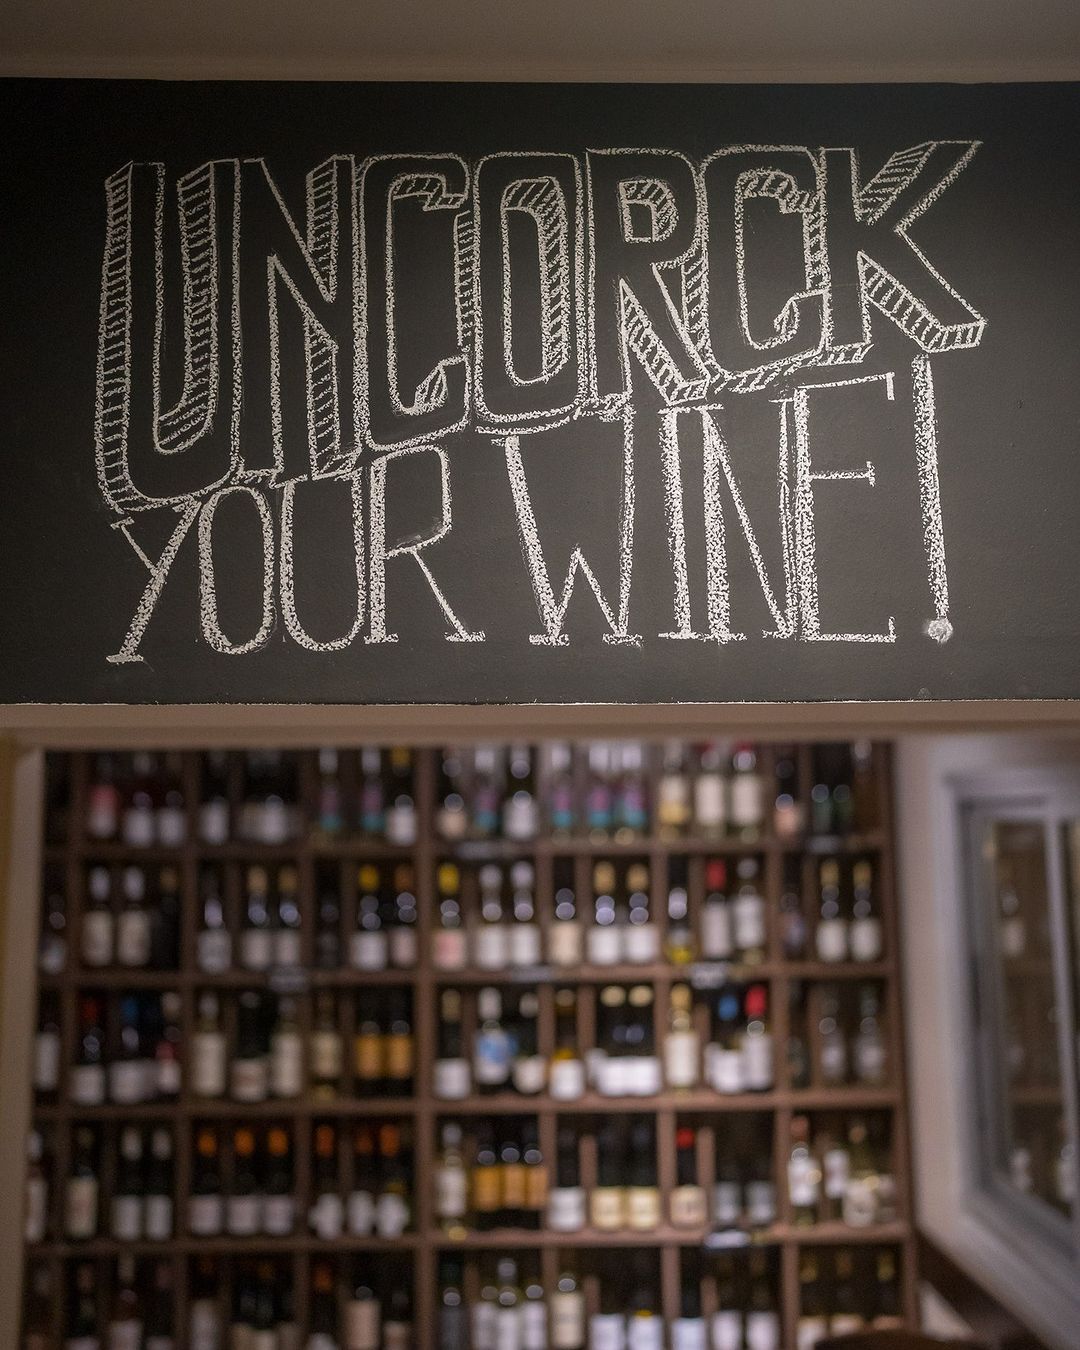 UNCORCK
YOUR WINE!